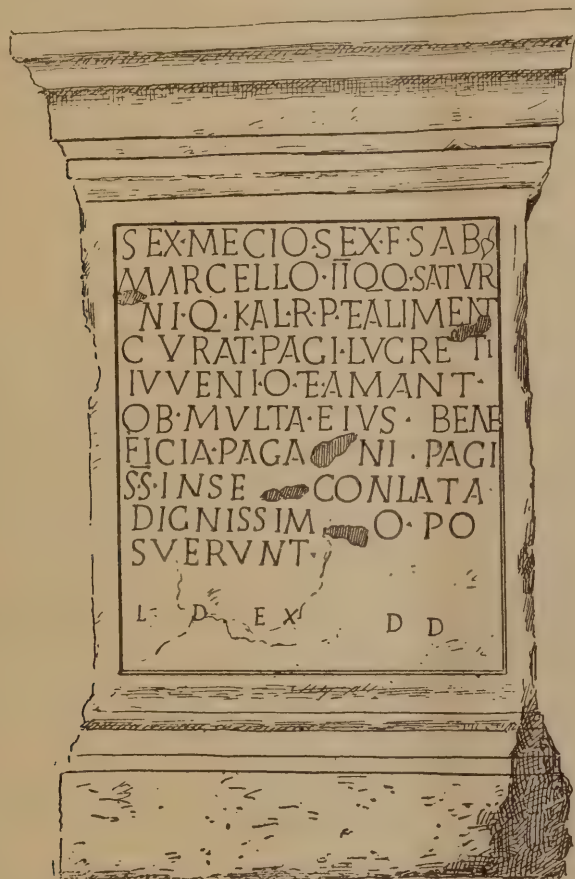 SEX·MECIO·SEX·F·SAB
MARCELLO·IIQQ·SATVR
NI·Q·KAL·R·P·ET·ALIMENT
CVRAT·PAGI·LVCRETI
IVVENI·O·ET·AMANT·
OB·MVLTA·EIVS·BENE
FICIA·PAGANI·PAGI
SS·INSE CONLATA·
DIGNISSIMO·PO
SVERVNT·
L D EX D D